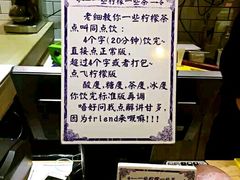 一些柠檬一些茶
老细教你一些柠檬茶
点叫同点饮:
4个字(20分钟)饮完~
直接点正常版,
超过4个字或者打包~
点飞柠檬版
酸度,糖度,茶度,冰度
你饮完标准版再调
唔好问我点解甘多,
因为friend来嘅嘛!!!